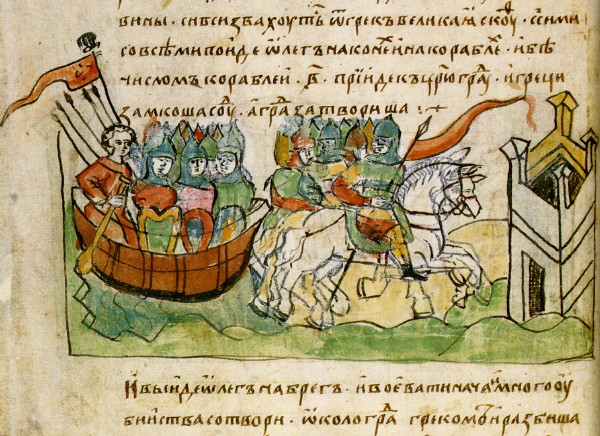 вины · си вси звахоут ѿ грекъ великаꙗ скоуⷴ · с сими
со всѣми поиде ѡлегъ на конеи и на кораблѣ · и бѣ
числомъ кораблеи · в҃ · прїидекъ цр҃юграⷣ · и греци
замкоша соуⷣ · а граⷣ затвориша ·
И выиде ѡлегъ на брегъ · и воевати нача и много оу
биства сотвори · ѿколо граⷣ грекомъ и разбиша